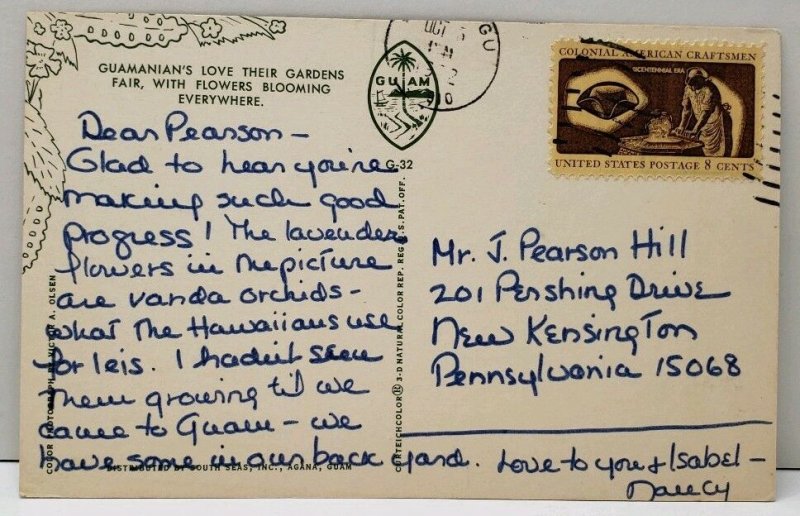 GUAMANIAN'S LOVE THEIR GARDENS
FAIR, WITH FLOWERS BLOOMING
EVERYWHERE.
GUAM
G-32
OCT
GU
COLONIAL AMERICAN CRAFTSMEN
BICENTENNIAL ERA
UNITED STATES POSTAGE 8 CENTS
Dear Pearson –
Glad to hear you're
making such good
progress! The lavender
flowers in the picture
are vanda orchids –
what the Hawaiians use
for leis. I hadn't seen
them growing til we
came to Guam – we
have some in our back yard. Love to you & Isabel –
Nancy
Mr. J. Pearson Hill
201 Pershing Drive
New Kensington
Pennsylvania 15068
COLOR PHOTOGRAPH BY VICTOR A. OLSEN
DISTRIBUTED BY SOUTH SEAS, INC., AGANA, GUAM
CURTEICHCOLOR ® 3-D NATURAL COLOR REP. REG. U.S. PAT. OFF.